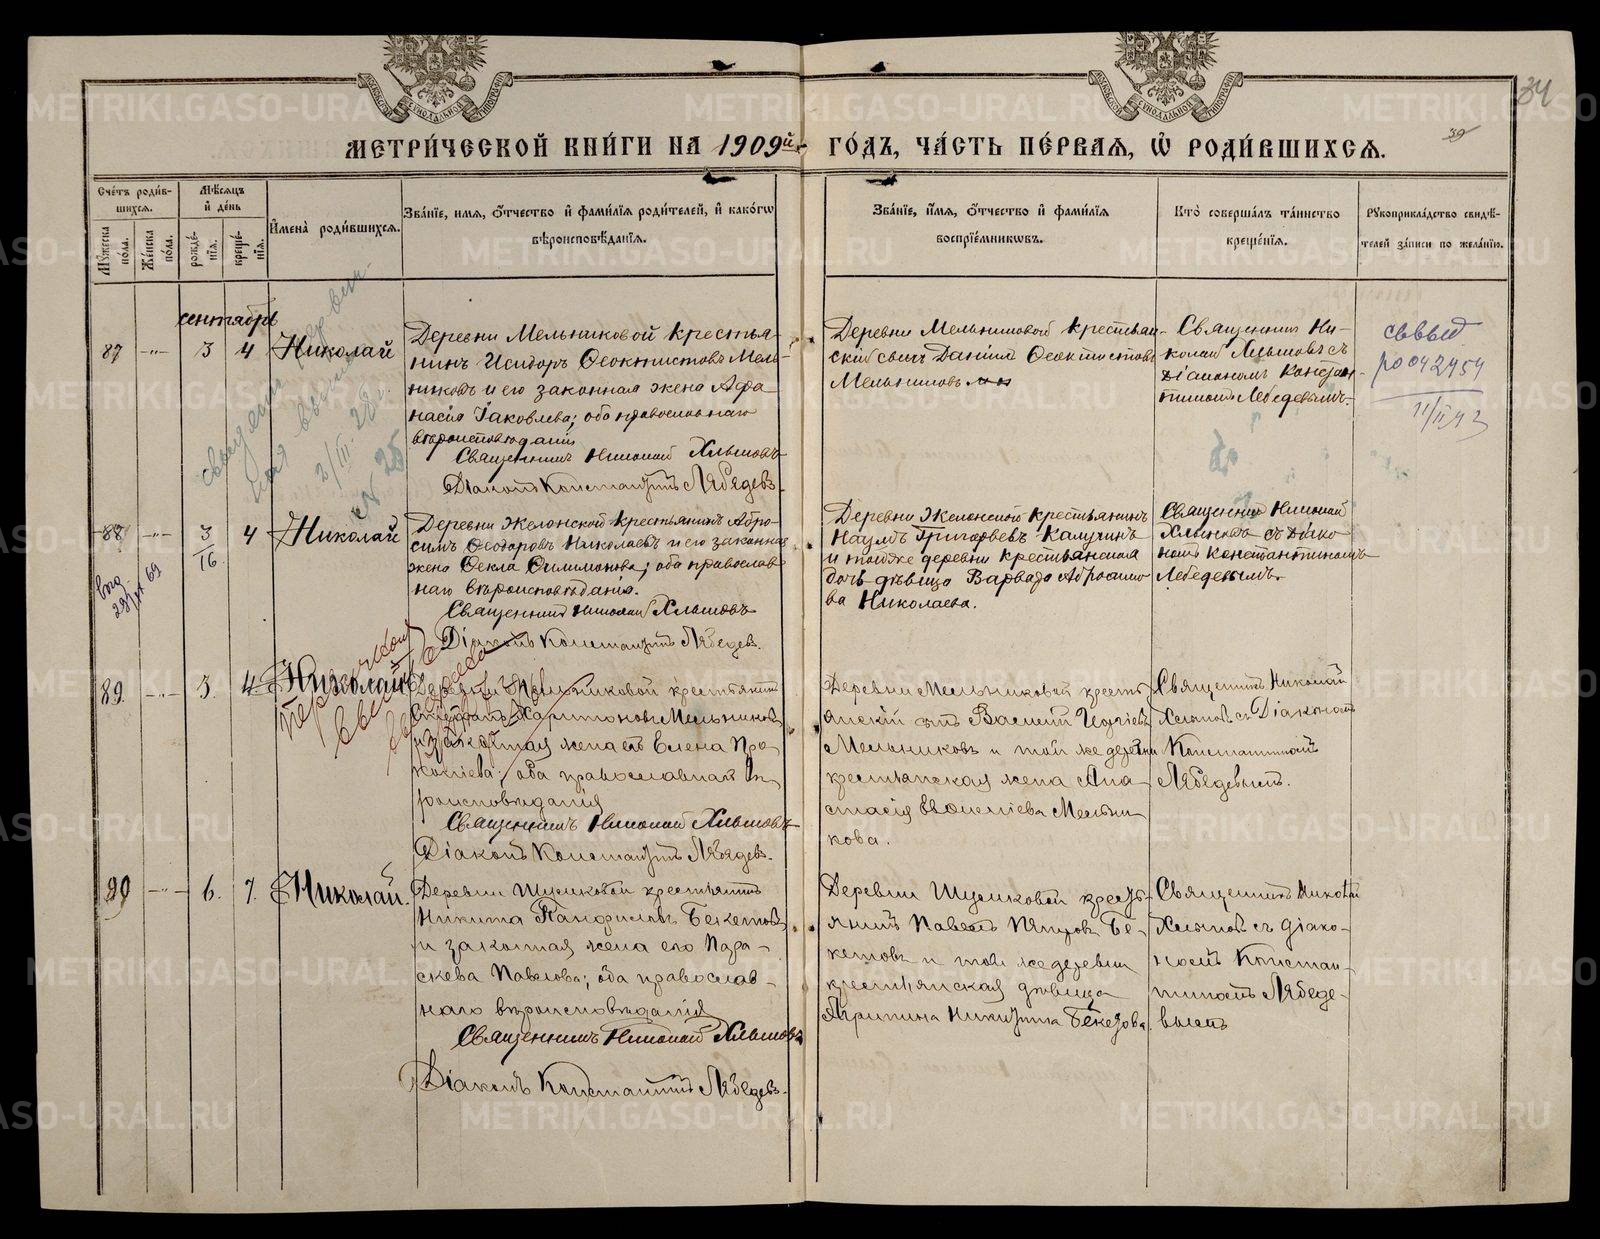 34
39
МЕТРИ́ЧЕСКОЙ КНИ́ГИ НА 1909й ГО́ДЪ, ЧА́СТЬ ПЕ́РВАЯ, Ѡ РОДИ́ВШИХСЯ.
Сче́тъ роди́в-
шихся.
Му́жеска по́ла.
Же́нска по́ла.
Мѣ́сяцъ
и҆ де́нь
рожде́-
нїя.
креще́-
нїя.
И҆мена̀ роди́вшихся.
Зва́нїе, имя, ѻ҆́тчество и҆ фами́лїя роди́телей, и҆ како́гѡ
вѣроисповѣ́данїя.
Зва́нїе, и҆́мя, ѻ҆́тчество и҆ фами́лїя
воспрїе́мниковъ.
Кто̀ соверша́лъ та́инство
креще́нїя.
Рꙋкоприкла́дство свидѣ́-
телей за́писи по жела́нїю.
сентябрь
87 -"- 3 4 Николай
Деревни Мельниковой крестья-
нинъ Исидоръ Ѳеоктистовъ Мель-
никовъ и его законная жена Афа-
насія Іаковлева; оба православнаго
вѣроисповѣданія
Священникъ Николай Хлыновъ
Діаконъ Константинъ Лебедевъ.
Деревни Мельниковой крестьян-
скій сынъ Даніилъ Ѳеоктистовъ
Мельниковъ
Священникъ Ни-
колай Хлыновъ съ
діакономъ Констан-
тиномъ Лебедевымъ.
РО 042954
11/II 43
2/III 28
№ 25
88 -"- 3/16 4 Николай
Деревни Жела́нской крестьянинъ Абро-
симъ Ѳеодоровъ Николаевъ и его законная
жена Ѳекла Филимонова; оба православ-
наго вѣроисповѣданія.
Священникъ Николай Хлыновъ
Діаконъ Константинъ Лебедевъ.
Наумъ Григорьевъ Калугинъ
и тойже деревни крестьянская
дочь дѣвица Варвара Абросимо-
ва Николаева.
Священникъ Николай
Хлыновъ съ діако-
номъ Константиномъ
Лебедевымъ.
89. -"- 3. 4 Николай
Деревни Мельниковой крестьянинъ
Харитоновъ Мельниковъ
и законная жена его Елена Про-
копіева; оба православнаго вѣ-
роисповѣданія
Священникъ Николай Хлыновъ
Діаконъ Константинъ Лебедевъ.
Деревни Мельниковой кресть-
янскій сынъ Василій
Мельниковъ и той же деревни
крестьянская жена Ана-
стасія Мельни-
кова.
Священникъ Николай
Хлыновъ съ Діакономъ
Константиномъ
Лебедевымъ.
-"- 6. 7. Николай.
Деревни крестьянинъ
Никита Панфиловъ Бекетовъ
и законная жена его Пара-
скева Павлова; оба православ-
наго вѣроисповѣданія
Священникъ Николай Хлыновъ
Діаконъ Константинъ Лебедевъ.
Деревни кресть-
янинъ Павелъ Бе-
кетовъ и той же деревни
крестьянская дѣвица
Агрипина Никитина Бекетова
Священникъ Николай
Хлыновъ съ діако-
номъ Констан-
тиномъ Лебеде-
вымъ
METRIKI.GASO-URAL.RU